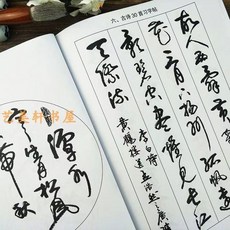 六、古诗30首习字帖
故人西辞黄
花三月下扬州孤帆
影碧空尽唯见长江
天际流
李白诗
黄鹤楼送孟浩然之广
潭水
生月松风
秋
墨轩书屋